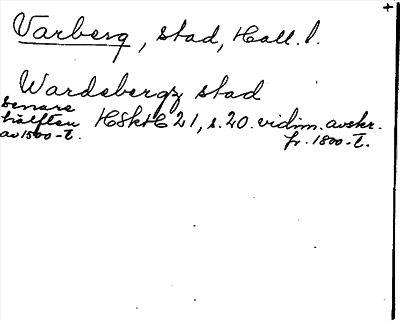 Varberg, stad, Hall. l.
Wardsbergz stad
senare
hälften HSkH 21, s. 20. vidim. avskr.
av 1500-t. fr. 1800-t.